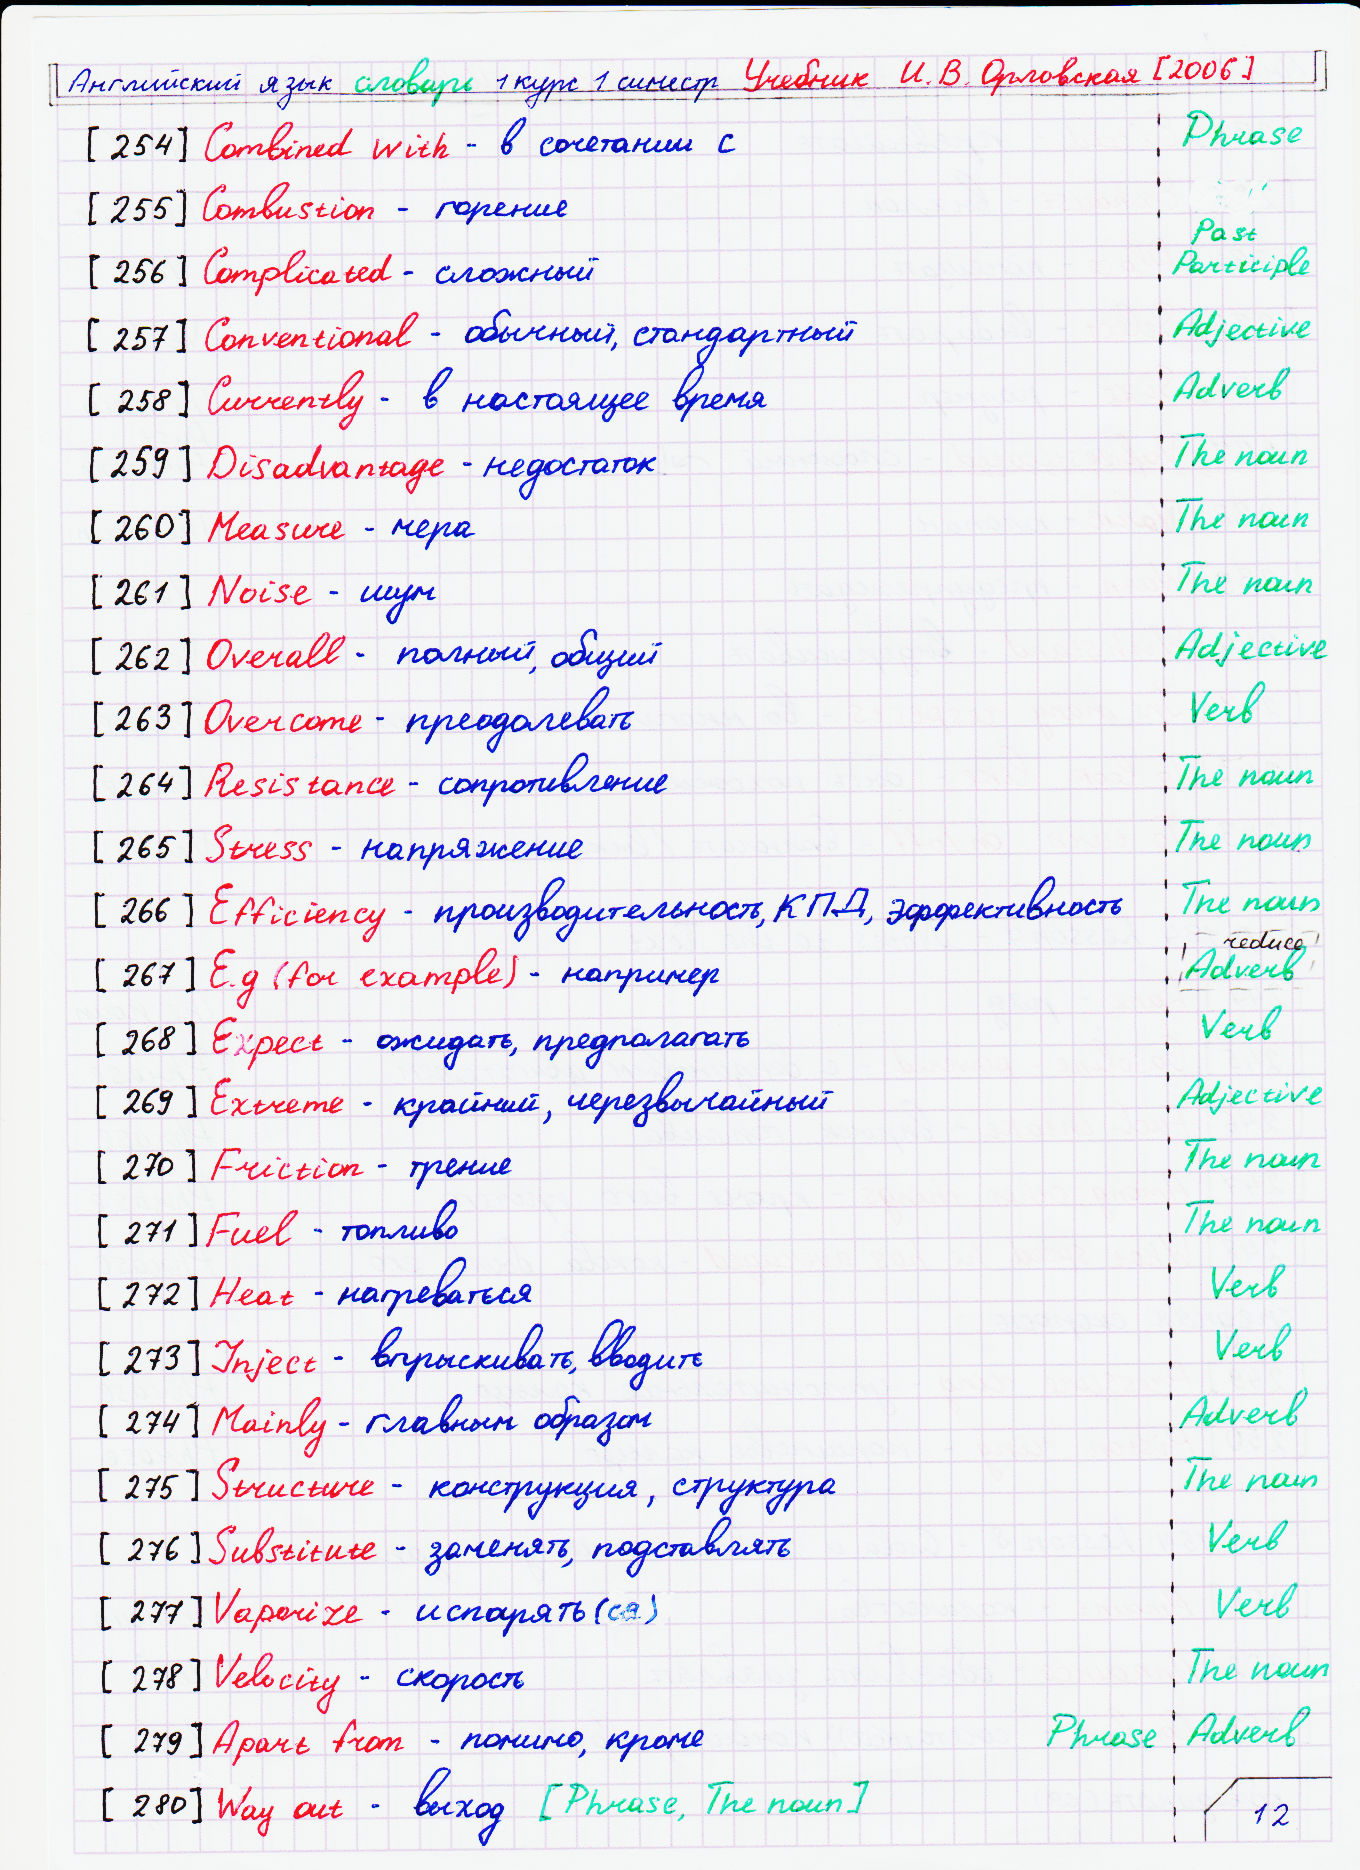 Английский язык словарь 1 курс 1 симестр Учебник И. В. Орловская [2006]
[254] Combined with - в сочетании с Phrase
[255] Combustion - горение
[256] Complicated - сложный Past Participle
[257] Conventional - обычный, стандартный Adjective
[258] Currently - в настоящее время Adverb
[259] Disadvantage - недостаток The noun
[260] Measure - мера The noun
[261] Noise - шум The noun
[262] Overall - полный, общий Adjective
[263] Overcome - преодолевать Verb
[264] Resistance - сопротивление The noun
[265] Stress - напряжение The noun
[266] Efficiency - производительность, КПД, эффективность The noun
[267] E.g (for example) - например reduce Adverb
[268] Expect - ожидать, предполагать Verb
[269] Extreme - крайний, черезвычайный Adjective
[270] Friction - трение The noun
[271] Fuel - топливо The noun
[272] Heat - нагреваться Verb
[273] Inject - впрыскивать, вводить Verb
[274] Mainly - главным образом Adverb
[275] Structure - конструкция, структура The noun
[276] Substitute - заменять, подставлять Verb
[277] Vaporize - испарять(ся) Verb
[278] Velocity - скорость The noun
[279] Apart from - помимо, кроме Phrase Adverb
[280] Way out - выход [Phrase, The noun]
12